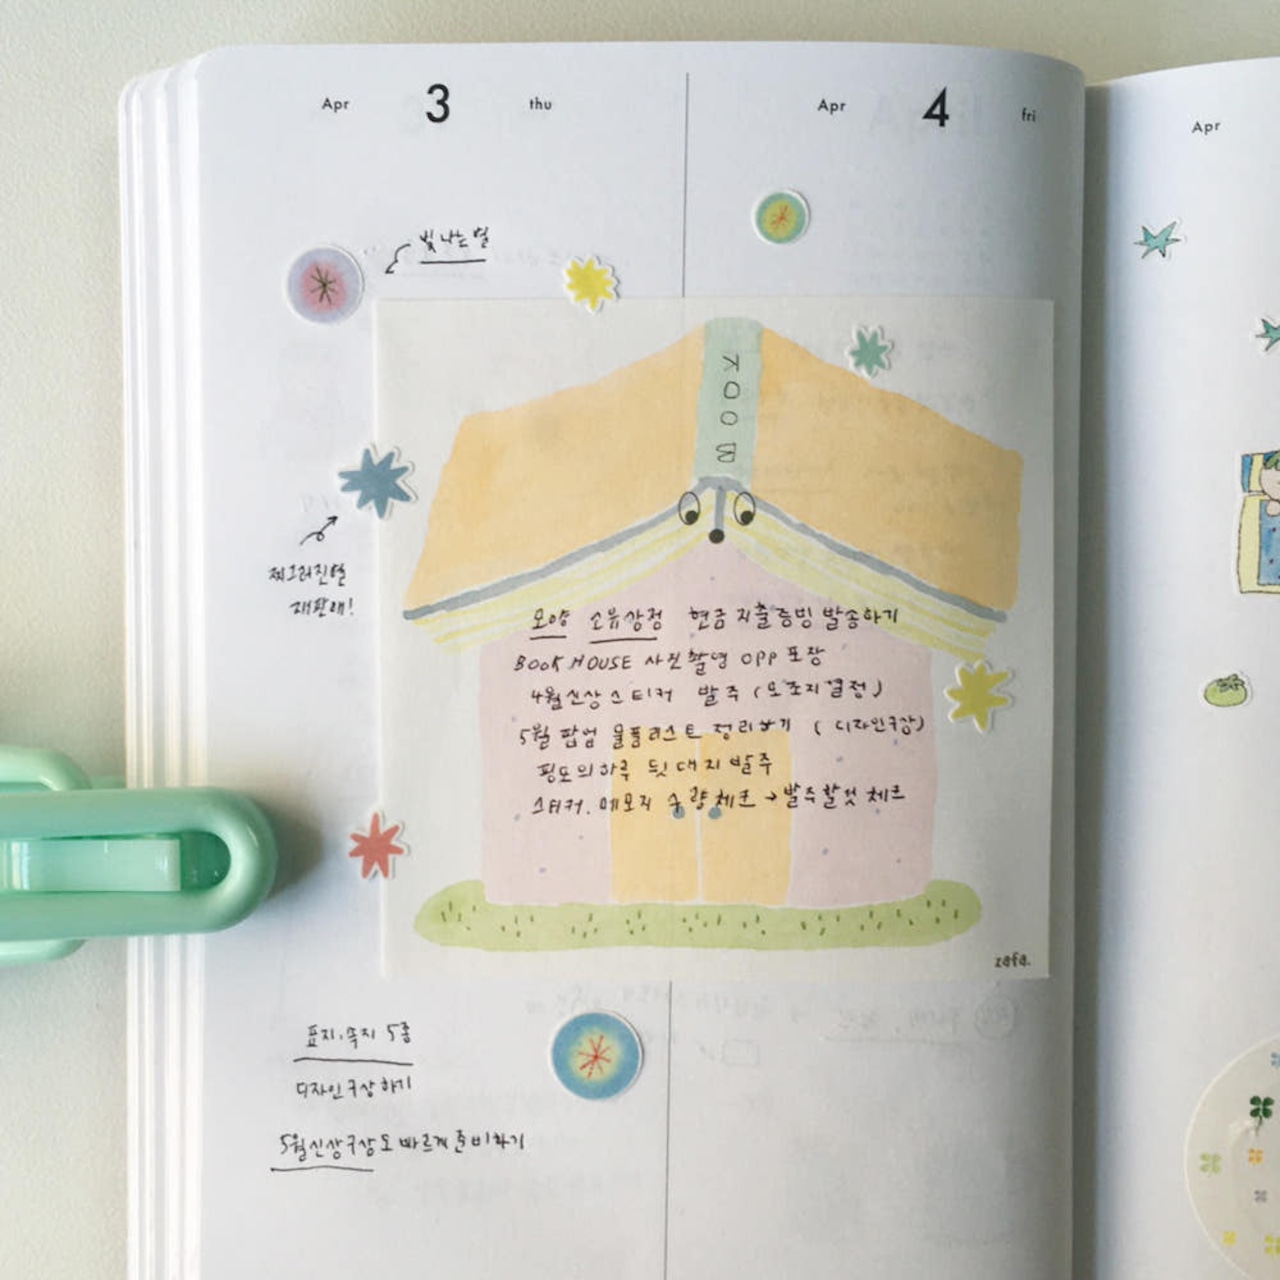 Apr 3 thu
Apr 4 fri
Apr
빛나는별
BOOK
찌그러진별
재판매!
모양 소유상점 현금지출증빙 발송하기
BOOK HOUSE 사진촬영 OPP 포장
4월신상스티커 발주 (모조지결정)
5월 팝업 물품리스트 정리하기 (디자인구상)
핑또의하루 뒷대지 발주
스티커. 메모지 수량체크 → 발주할것 체크
zafa.
표지, 속지 5종
디자인구상하기
5월신상구상도 빠르게 준비하기